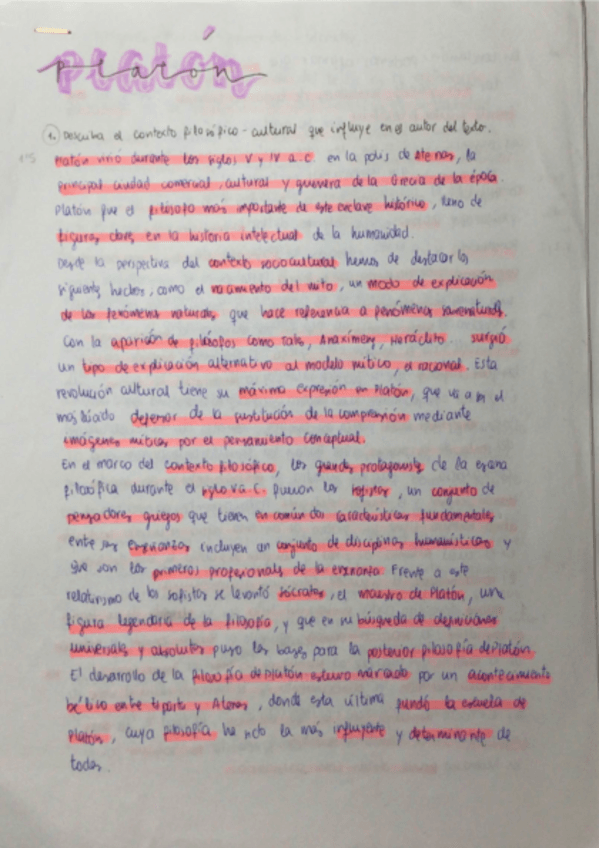 Platón
1. Describa el contexto filosófico-cultural que influye en el autor del texto.
Platón vivió durante los siglos V y IV a.C. en la polis de Atenas, la
principal ciudad comercial, cultural y guerrera de la Grecia de la época.
Platón fue el filósofo más importante de este enclave histórico, lleno de
figuras claves en la historia intelectual de la humanidad.
Desde la perspectiva del contexto sociocultural hemos de destacar los
siguientes hechos, como el nacimiento del mito, un modo de explicación
de los fenómenos naturales que hace referencia a fenómenos sobrenaturales.
Con la aparición de filósofos como Tales, Anaxímenes, Heráclito surgió
un tipo de explicación alternativo al modelo mítico, el racional. Esta
revolución cultural tiene su máxima expresión en Platón, que va a ser el
más lúcido defensor de la sustitución de la comprensión mediante
imágenes míticas por el pensamiento conceptual.
En el marco del contexto filosófico, los grandes protagonistas de la escena
filosófica durante el siglo V a.C. fueron los sofistas, un conjunto de
pensadores griegos que tienen en común dos características fundamentales
entre sus enseñanzas incluyen un conjunto de disciplinas humanísticas y
que son los primeros profesionales de la enseñanza. Frente a este
relativismo de los sofistas se levantó Sócrates, el maestro de Platón, una
figura legendaria de la filosofía, y que en su búsqueda de definiciones
universales y absolutas puso las bases para la posterior filosofía de Platón.
El desarrollo de la filosofía de Platón estuvo marcado por un acontecimiento
bélico entre Esparta y Atenas, donde esta última fundó la escuela de
Platón, cuya filosofía ha sido la más influyente y determinante de
todas.